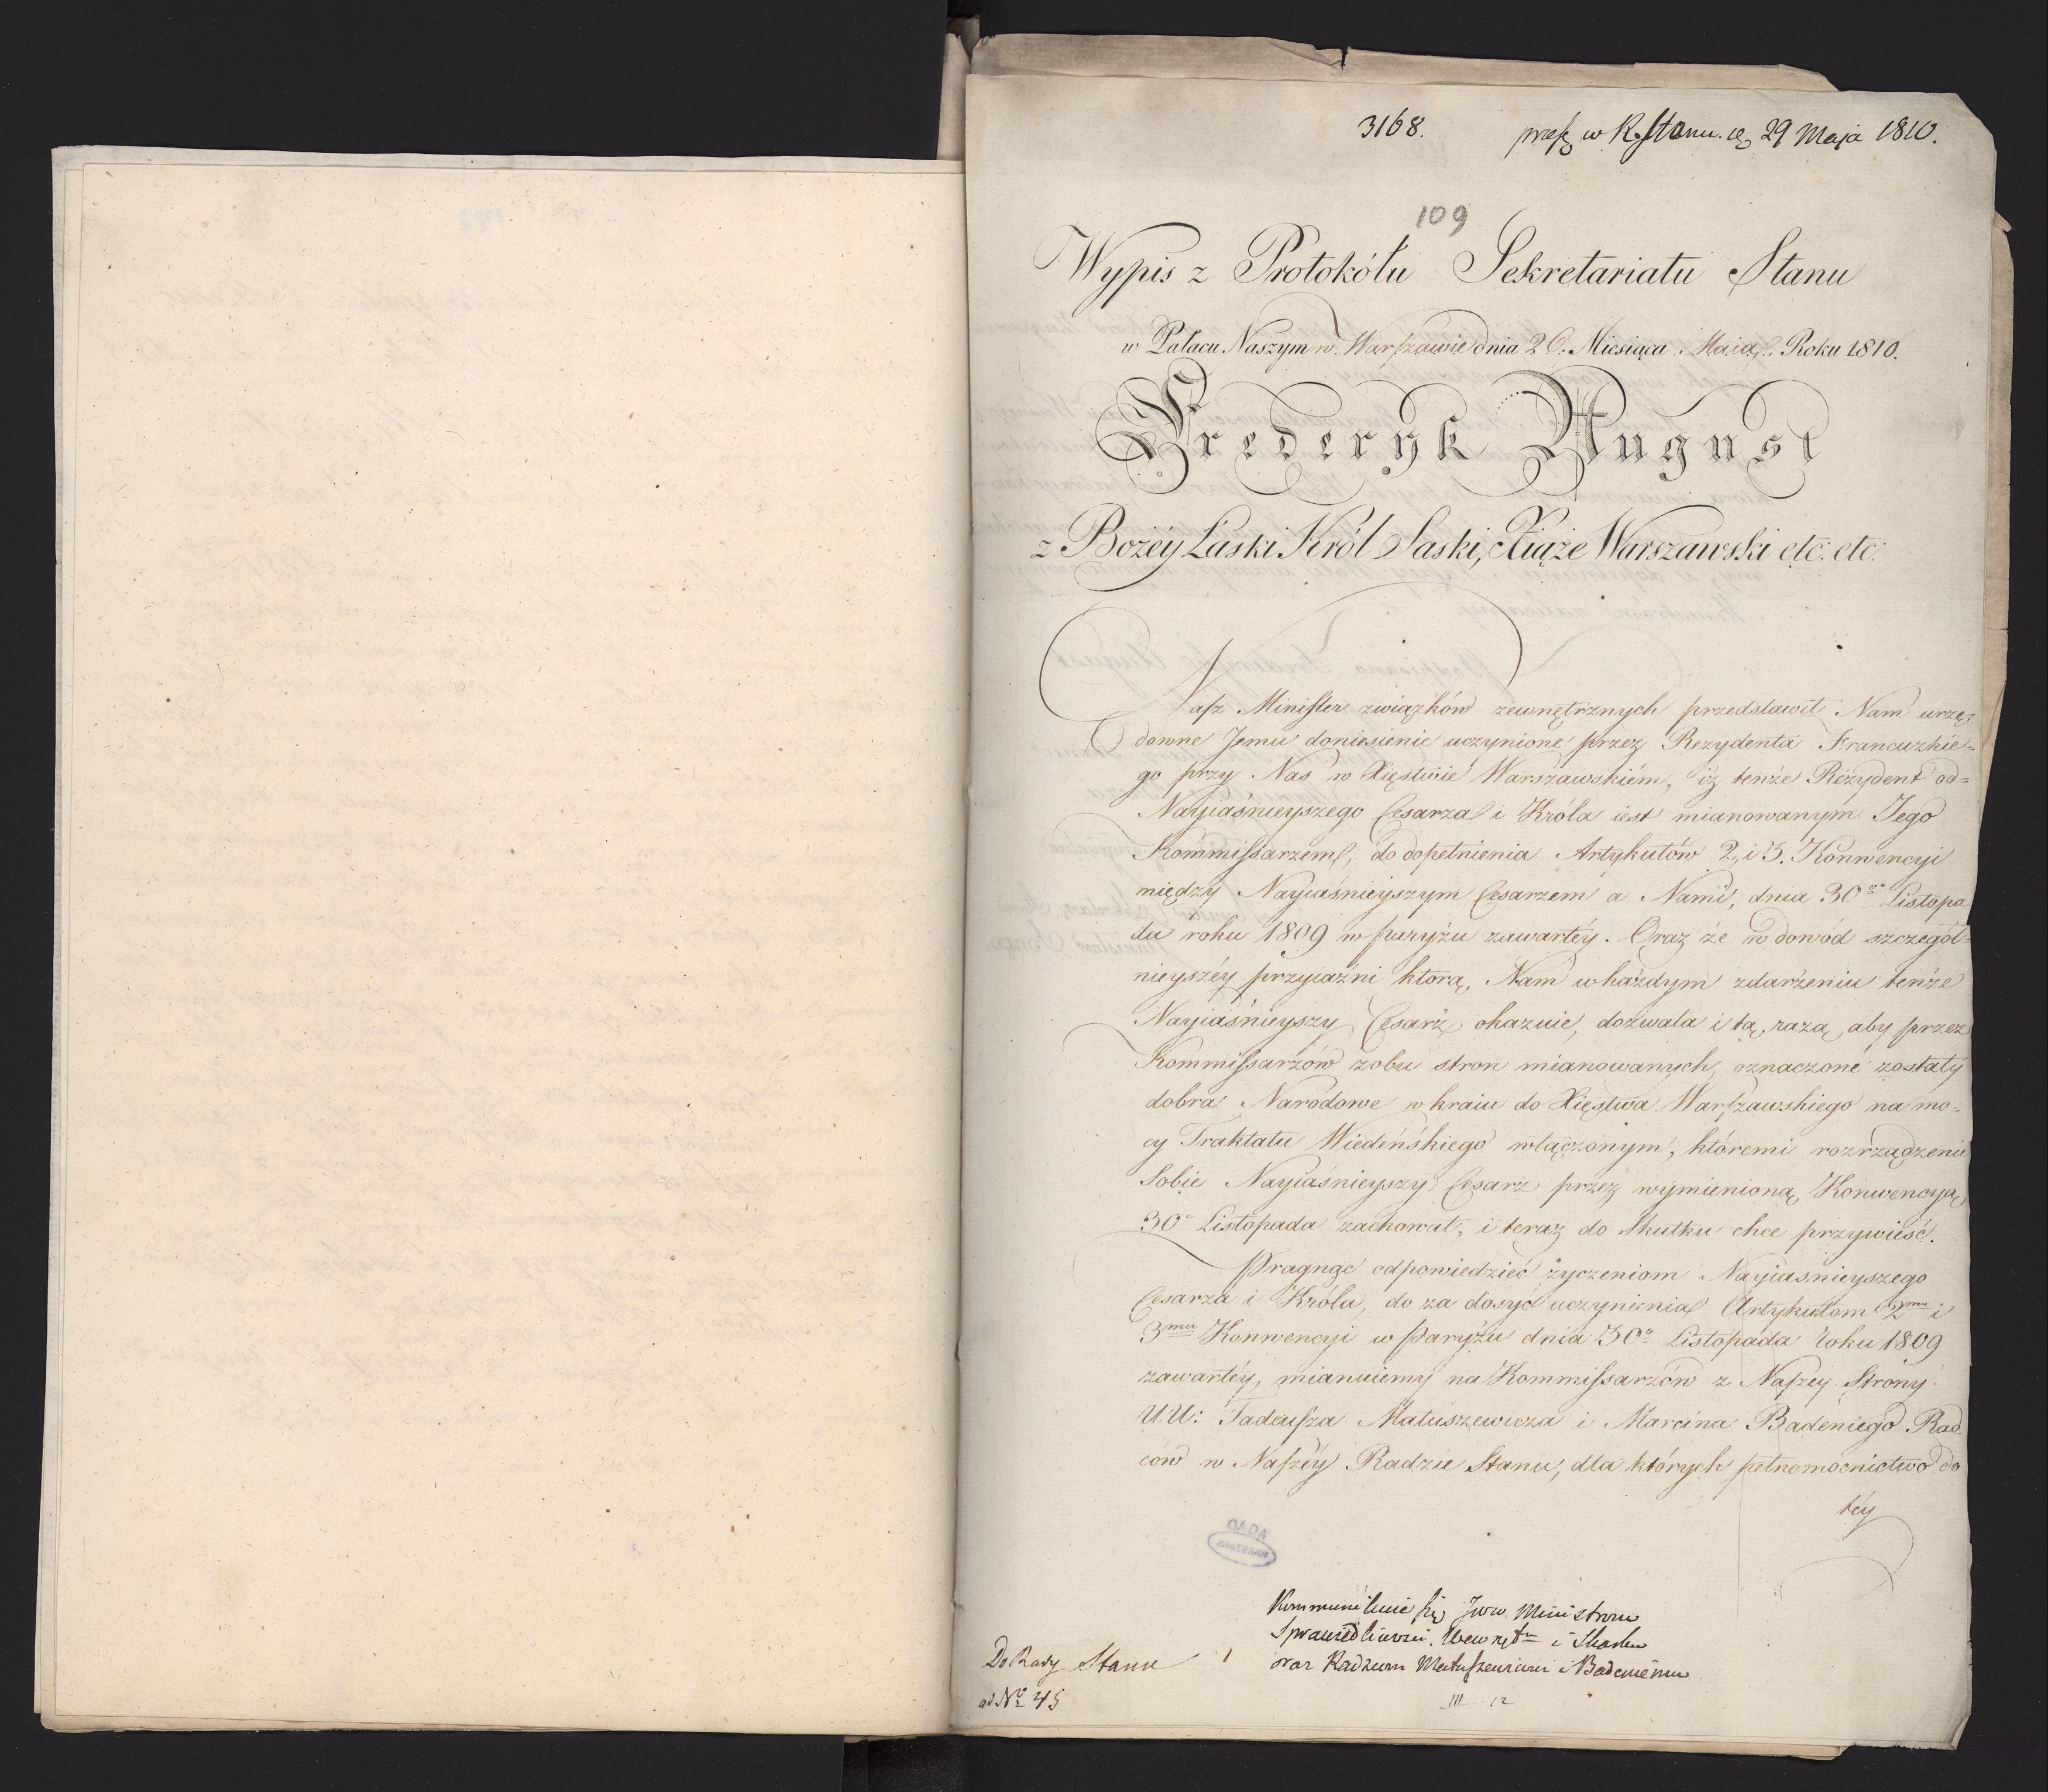 3168. praes w R. Stanu. d. 29 Maja 1810.
109
Wypis z Protokółu Sekretariatu Stanu
w Pałacu Naszym w Warszawie dnia 26. Miesiąca Maia Roku 1810.
Frederyk August
z Bożéy Łaski Król Saski, Xiąże Warszawski etc. etc.
Nasz Minister związków zewnętrznych przedstawił Nam urzę-
downe Jemu doniesienie uczynione przez Rezydenta Francuzkie-
go przy Nas w Xięstwie Warszawskiém, iż tenże Rezydent od-
Nayiaśnieyszego Cesarza i Króla iest mianowanym Jego
Kommissarzem, do dopełnienia Artykułów 2. i 3. Konwencyi
między Nayiaśnieyszym Cesarzem a Nami, dnia 30go Listopa
da roku 1809 w Paryżu zawartéy. Oraz że w dowód szczegól-
nieyszéy przyiaźni ktorą, Nam w każdym zdarzeniu tenże
Nayiaśnieyszy Cesarz okazuie, dozwala i tą razą, aby przez
Kommissarzów z obu stron mianowanych, oznaczone zostały
dobra Narodowe w kraiu do Xięstwa Warszawskiego na mo-
cy Traktatu Wiedeńskiego włączonym, któremi rozrządzenie
Sobie Nayiaśnieyszy Cesarz przez wymienioną Konwencyą
30o Listopada zachował, i teraz do Skutku chce przywieść.
Pragnąc odpowiedzieć życzeniom Nayiasnieyszego
Cesarza i Króla, do za dosyć uczynienia Artykułom 2mu i
3mu Konwencyi w Paryżu dnia 30o Listopada roku 1809
zawartéy, mianuiemy na Kommissarzów z Naszéy Strony
U.U: Tadeusza Matuszewicza i Marcina Badeniego Rad
ców w Naszéy Radzie Stanu, dla których pełnomocnictwo do
téy
AGAD
WARSZAWA
Kommunikuie się Jww Ministrom
Sprawiedliwosci. Wewnętn i Skarbu
oraz Radzcom Matuszewiczowi i Badeniemu
Do Rady Stanu 1
ad No 45
III 12